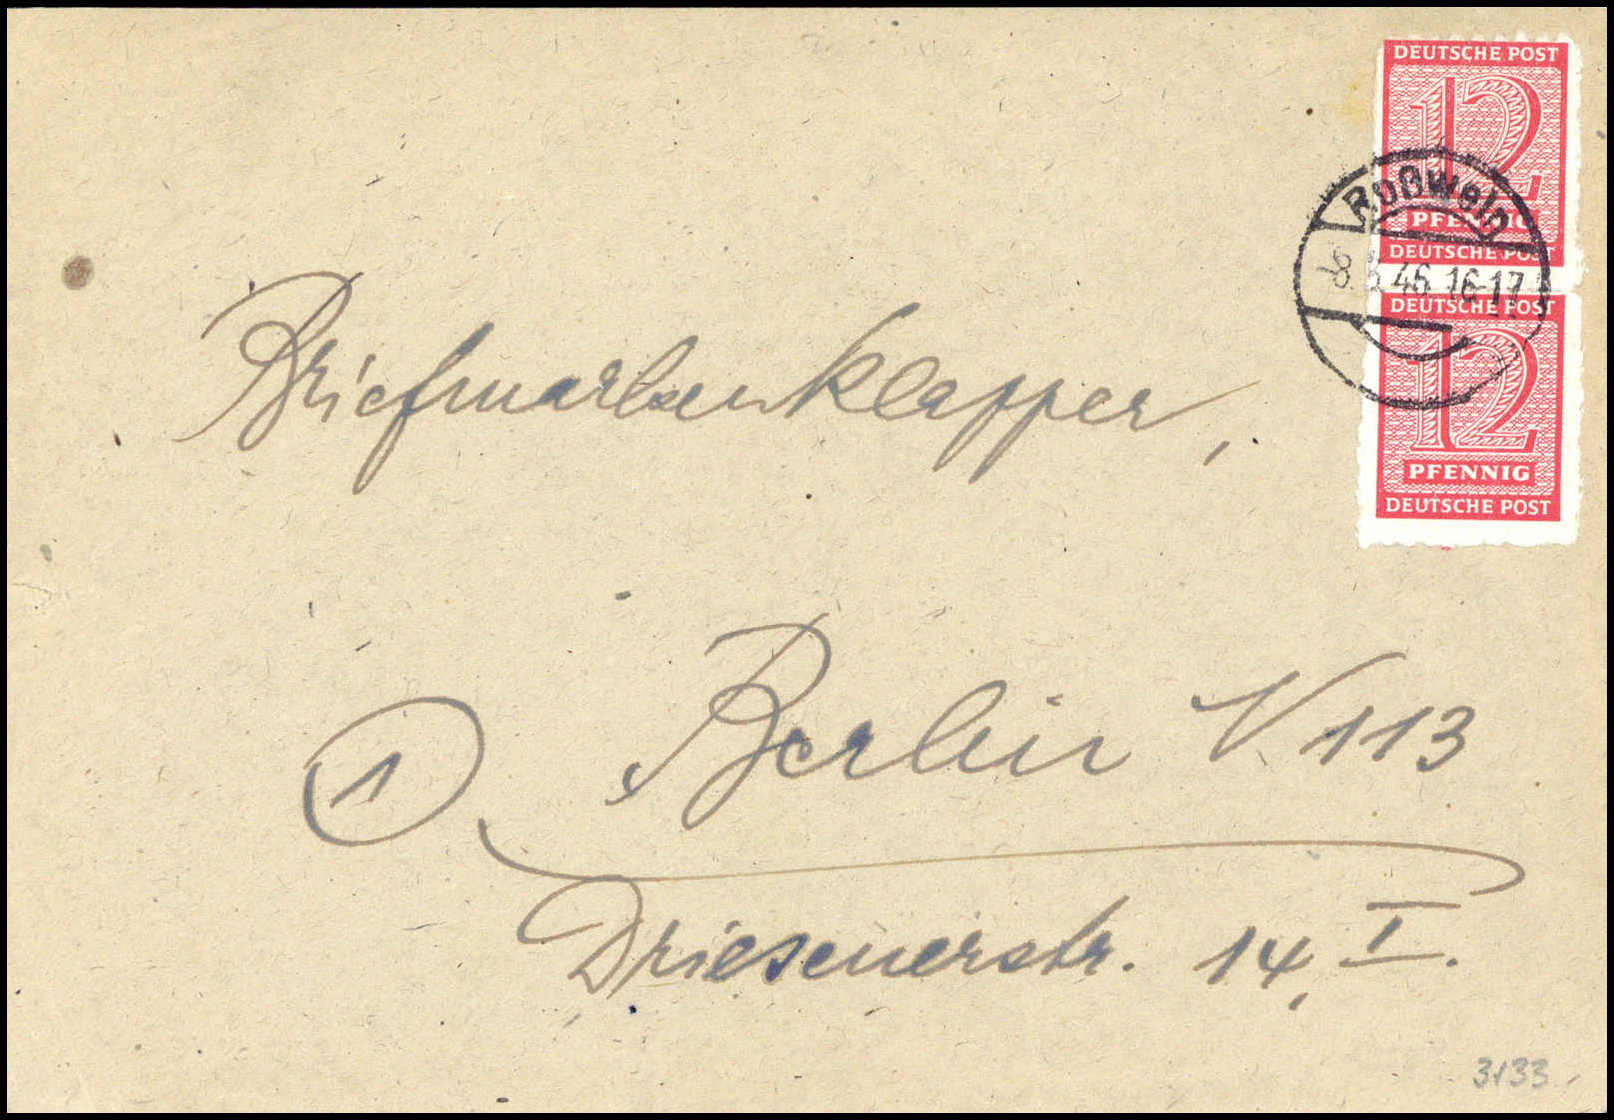 DEUTSCHE POST
12
PFENNIG
DEUTSCHE POST
Roßwein
-8.5.46.16-17
DEUTSCHE POST
12
PFENNIG
DEUTSCHE POST
Briefmarkenklapper,
1 Berlin N 113
Driesenerstr. 14, I.
3133